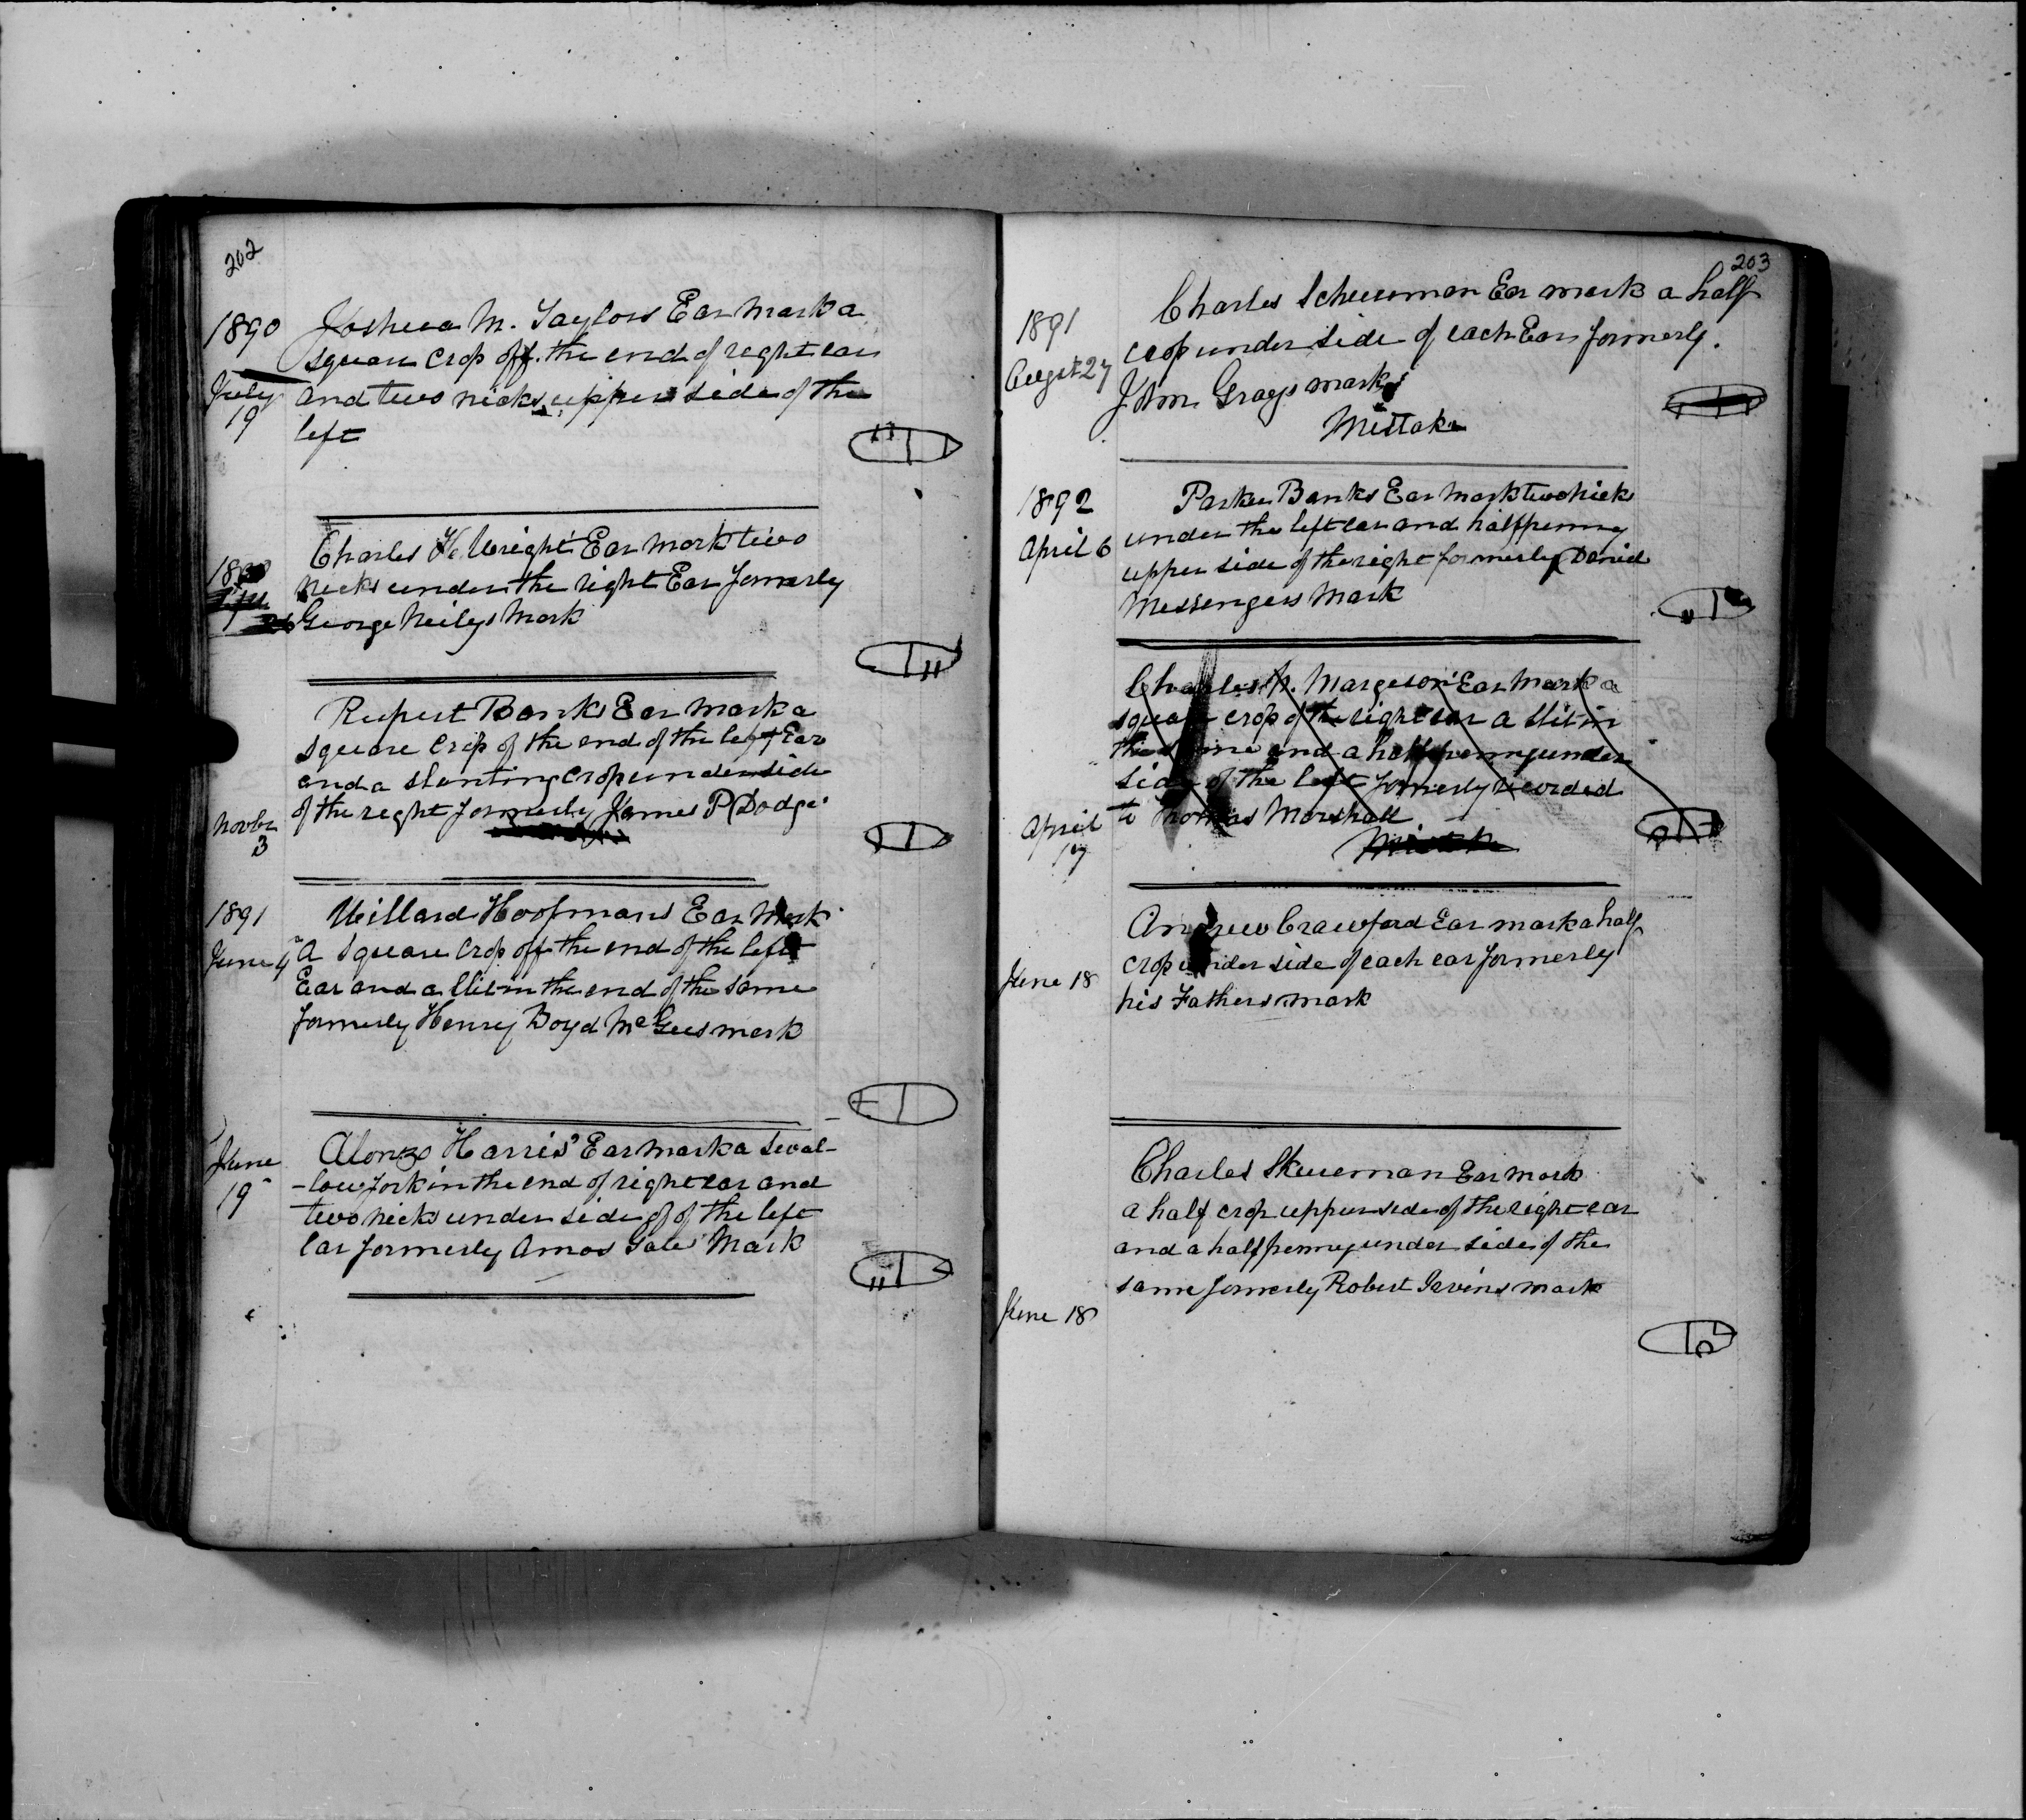 202
1890
Joshua M. Taylors Ear Mark a
square crop off the end of right ear
July
19
and two nicks upper side of the
left
Charles H. Wright Ear Mark two
nicks under the right Ear formerly
George Neilys Mark
Rupert Banks Ear Mark a
square crop of the end of the left Ear
and a slanting crop underside
of the right formerly James P Dodge
Novbr
3
1891
Willard Hoofmans Ear Mark
June 4
A square crop off the end of the left
Ear and a slit in the end of the same
formerly Henry Boyd McGees mark
June
19
Alonzo Harris' Ear mark a swal-
-low fork in the end of right ear and
two nicks under side of of the left
ear formerly Amos Gates Mark
203
1891
August 27
Charles Scheuerman Ear mark a half
crop under side of each Ear formerly.
Grays mark
Mistake
1892
April 6
Parker Banks Ear Mark two nicks
under the left ear and halfpenny
upper side of the right formerly David
Messengers Mark
Charles Margeson Ear Mark a
square crop of the right ear a slit in
the same and a half penny under
side of the left formerly recorded
to Thomas Marshall
April
17
Andrew Crawford Ear mark a half
crop under side of each ear formerly
June 18
his Fathers mark
Charles Skuerman Ear mark
a half crop upper side of the right ear
and a halfpenny under side of the
same formerly Robert Irvins mark
June 18